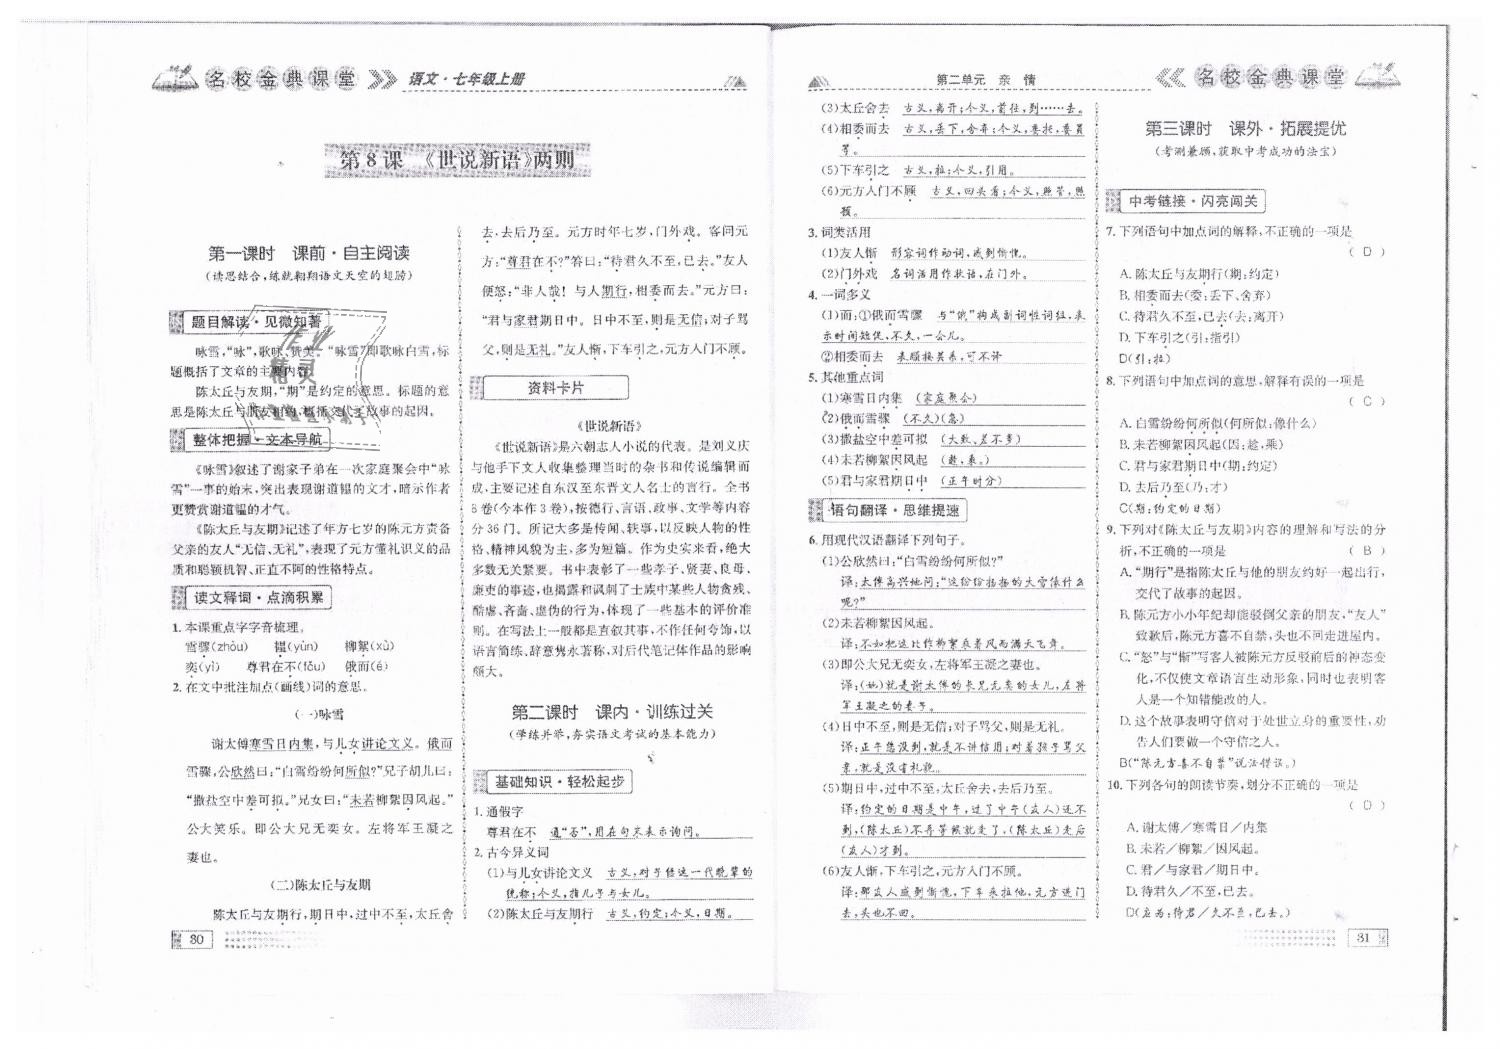 名校金典课堂 语文·七年级上册
第8课 《世说新语》两则
第一课时 课前·自主阅读
(读思结合,练就翱翔语文天空的翅膀)
题目解读·见微知著
咏雪,“咏”,歌咏、赞美。“咏雪”即歌咏白雪,标
题概括了文章的主要内容。
陈太丘与友期,“期”是约定的意思。标题的意
思是陈太丘与朋友相约,概括交代了故事的起因。
整体把握·文本导航
《咏雪》叙述了谢家子弟在一次家庭聚会中“咏
雪”一事的始末,突出表现谢道韫的文才,暗示作者
更赞赏谢道韫的才气。
《陈太丘与友期》记述了年方七岁的陈元方责备
父亲的友人“无信、无礼”,表现了元方懂礼识义的品
质和聪颖机智、正直不阿的性格特点。
读文释词·点滴积累
1. 本课重点字字音梳理。
雪骤(zhòu) 韫(yùn) 柳絮(xù)
奕(yì) 尊君在不(fǒu) 俄而(é)
2. 在文中批注加点(画线)词的意思。
(一)咏雪
谢太傅寒雪日内集,与儿女讲论文义。俄而
雪骤,公欣然曰:“白雪纷纷何所似?”兄子胡儿曰:
“撒盐空中差可拟。”兄女曰:“未若柳絮因风起。”
公大笑乐。即公大兄无奕女。左将军王凝之
妻也。
(二)陈太丘与友期
陈太丘与友期行,期日中,过中不至,太丘舍
30
去,去后乃至。元方时年七岁,门外戏。客问元
方:“尊君在不?”答曰:“待君久不至,已去。”友人
便怒:“非人哉! 与人期行,相委而去。”元方曰:
“君与家君期日中。日中不至,则是无信;对子骂
父,则是无礼。”友人惭,下车引之,元方入门不顾。
资料卡片
《世说新语》
《世说新语》是六朝志人小说的代表。是刘义庆
与他手下文人收集整理当时的杂书和传说编辑而
成,主要记述自东汉至东晋文人名士的言行。全书
8卷(今本作3卷),按德行、言语、政事、文学等内容
分36门。所记大多是传闻、轶事,以反映人物的性
格、精神风貌为主,多为短篇。作为史实来看,绝大
多数无关紧要。书中表彰了一些孝子、贤妻、良母、
廉吏的事迹,也揭露和讽刺了士族中某些人物贪残、
酷虐、吝啬、虚伪的行为,体现了一些基本的评价准
则。在写法上一般都是直叙其事,不作任何夸饰,以
语言简练、辞意隽永著称,对后代笔记体作品的影响
颇大。
第二课时 课内·训练过关
(学练并举,夯实语文考试的基本能力)
基础知识·轻松起步
1. 通假字
尊君在不 通“否”,用在句末表示询问。
2. 古今异义词
(1)与儿女讲论文义 古义,对子侄这一代晚辈的
统称;今义,指儿子与女儿。
(2)陈太丘与友期行 古义,约定;今义,日期。
第二单元 亲 情 名校金典课堂
(3)太丘舍去 古义,离开;今义,前往,到……去。
(4)相委而去 古义,丢下,舍弃;今义,委托,委员
等。
(5)下车引之 古义,拉;今义,引用。
(6)元方入门不顾 古义,回头看;今义,照管,照
顾。
3. 词类活用
(1)友人惭 形容词作动词,感到惭愧。
(2)门外戏 名词活用作状语,在门外。
4. 一词多义
(1)而:①俄而雪骤 与“俄”构成副词性词组,表
示时间短促,不久,一会儿。
②相委而去 表顺接关系,可不译
5. 其他重点词
(1)寒雪日内集 (家庭聚会)
(2)俄而雪骤 (不久)(急)
(3)撒盐空中差可拟 (大致、差不多)
(4)未若柳絮因风起 (趁,乘。)
(5)君与家君期日中 (正午时分)
语句翻译·思维提速
6. 用现代汉语翻译下列句子。
(1)公欣然曰:“白雪纷纷何所似?”
译:太傅高兴地问:“这纷纷扬扬的大雪像什么
呢?”
(2)未若柳絮因风起。
译:不如把这比作柳絮乘着风而满天飞舞。
(3)即公大兄无奕女,左将军王凝之妻也。
译:(她)就是谢太傅的长兄无奕的女儿,左将
军王凝之的妻子。
(4)日中不至,则是无信;对子骂父,则是无礼。
译:正午您没到,就是不讲信用;对着孩子骂父
亲,就是没有礼貌。
(5)期日中,过中不至,太丘舍去,去后乃至。
译:约定的日期是中午,过了中午(友人)还不
到,(陈太丘)不再等候就走了,(陈太丘)走后
(友人)才到。
(6)友人惭,下车引之,元方入门不顾。
译:那友人感到惭愧,下车来拉他,元方进门
去,头也不回。
第三课时 课外·拓展提优
(考测兼顾,获取中考成功的法宝)
中考链接·闪亮闯关
7. 下列语句中加点词的解释,不正确的一项是
( D )
A. 陈太丘与友期行(期:约定)
B. 相委而去(委:丢下、舍弃)
C. 待君久不至,已去(去:离开)
D. 下车引之(引:指引)
D(引:拉)
8. 下列语句中加点词的意思,解释有误的一项是
( C )
A. 白雪纷纷何所似(何所似:像什么)
B. 未若柳絮因风起(因:趁,乘)
C. 君与家君期日中(期:约定)
D. 去后乃至(乃:才)
C(期:约定的日期)
9. 下列对《陈太丘与友期》内容的理解和写法的分
析,不正确的一项是 ( B )
A. “期行”是指陈太丘与他的朋友约好一起出行,
交代了故事的起因。
B. 陈元方小小年纪却能驳倒父亲的朋友,“友人”
致歉后,陈元方喜不自禁,头也不回走进屋内。
C. “怒”与“惭”写客人被陈元方反驳前后的神态变
化,不仅使文章语言生动形象,同时也表明客
人是一个知错能改的人。
D. 这个故事表明守信对于处世立身的重要性,劝
告人们要做一个守信之人。
B(“陈元方喜不自禁”说法错误。)
10. 下列各句的朗读节奏,划分不正确的一项是
( D )
A. 谢太傅/寒雪日/内集
B. 未若/柳絮/因风起。
C. 君/与家君/期日中。
D. 待君久/不至,已去。
D(应为:待君/久不至,已去。)
31